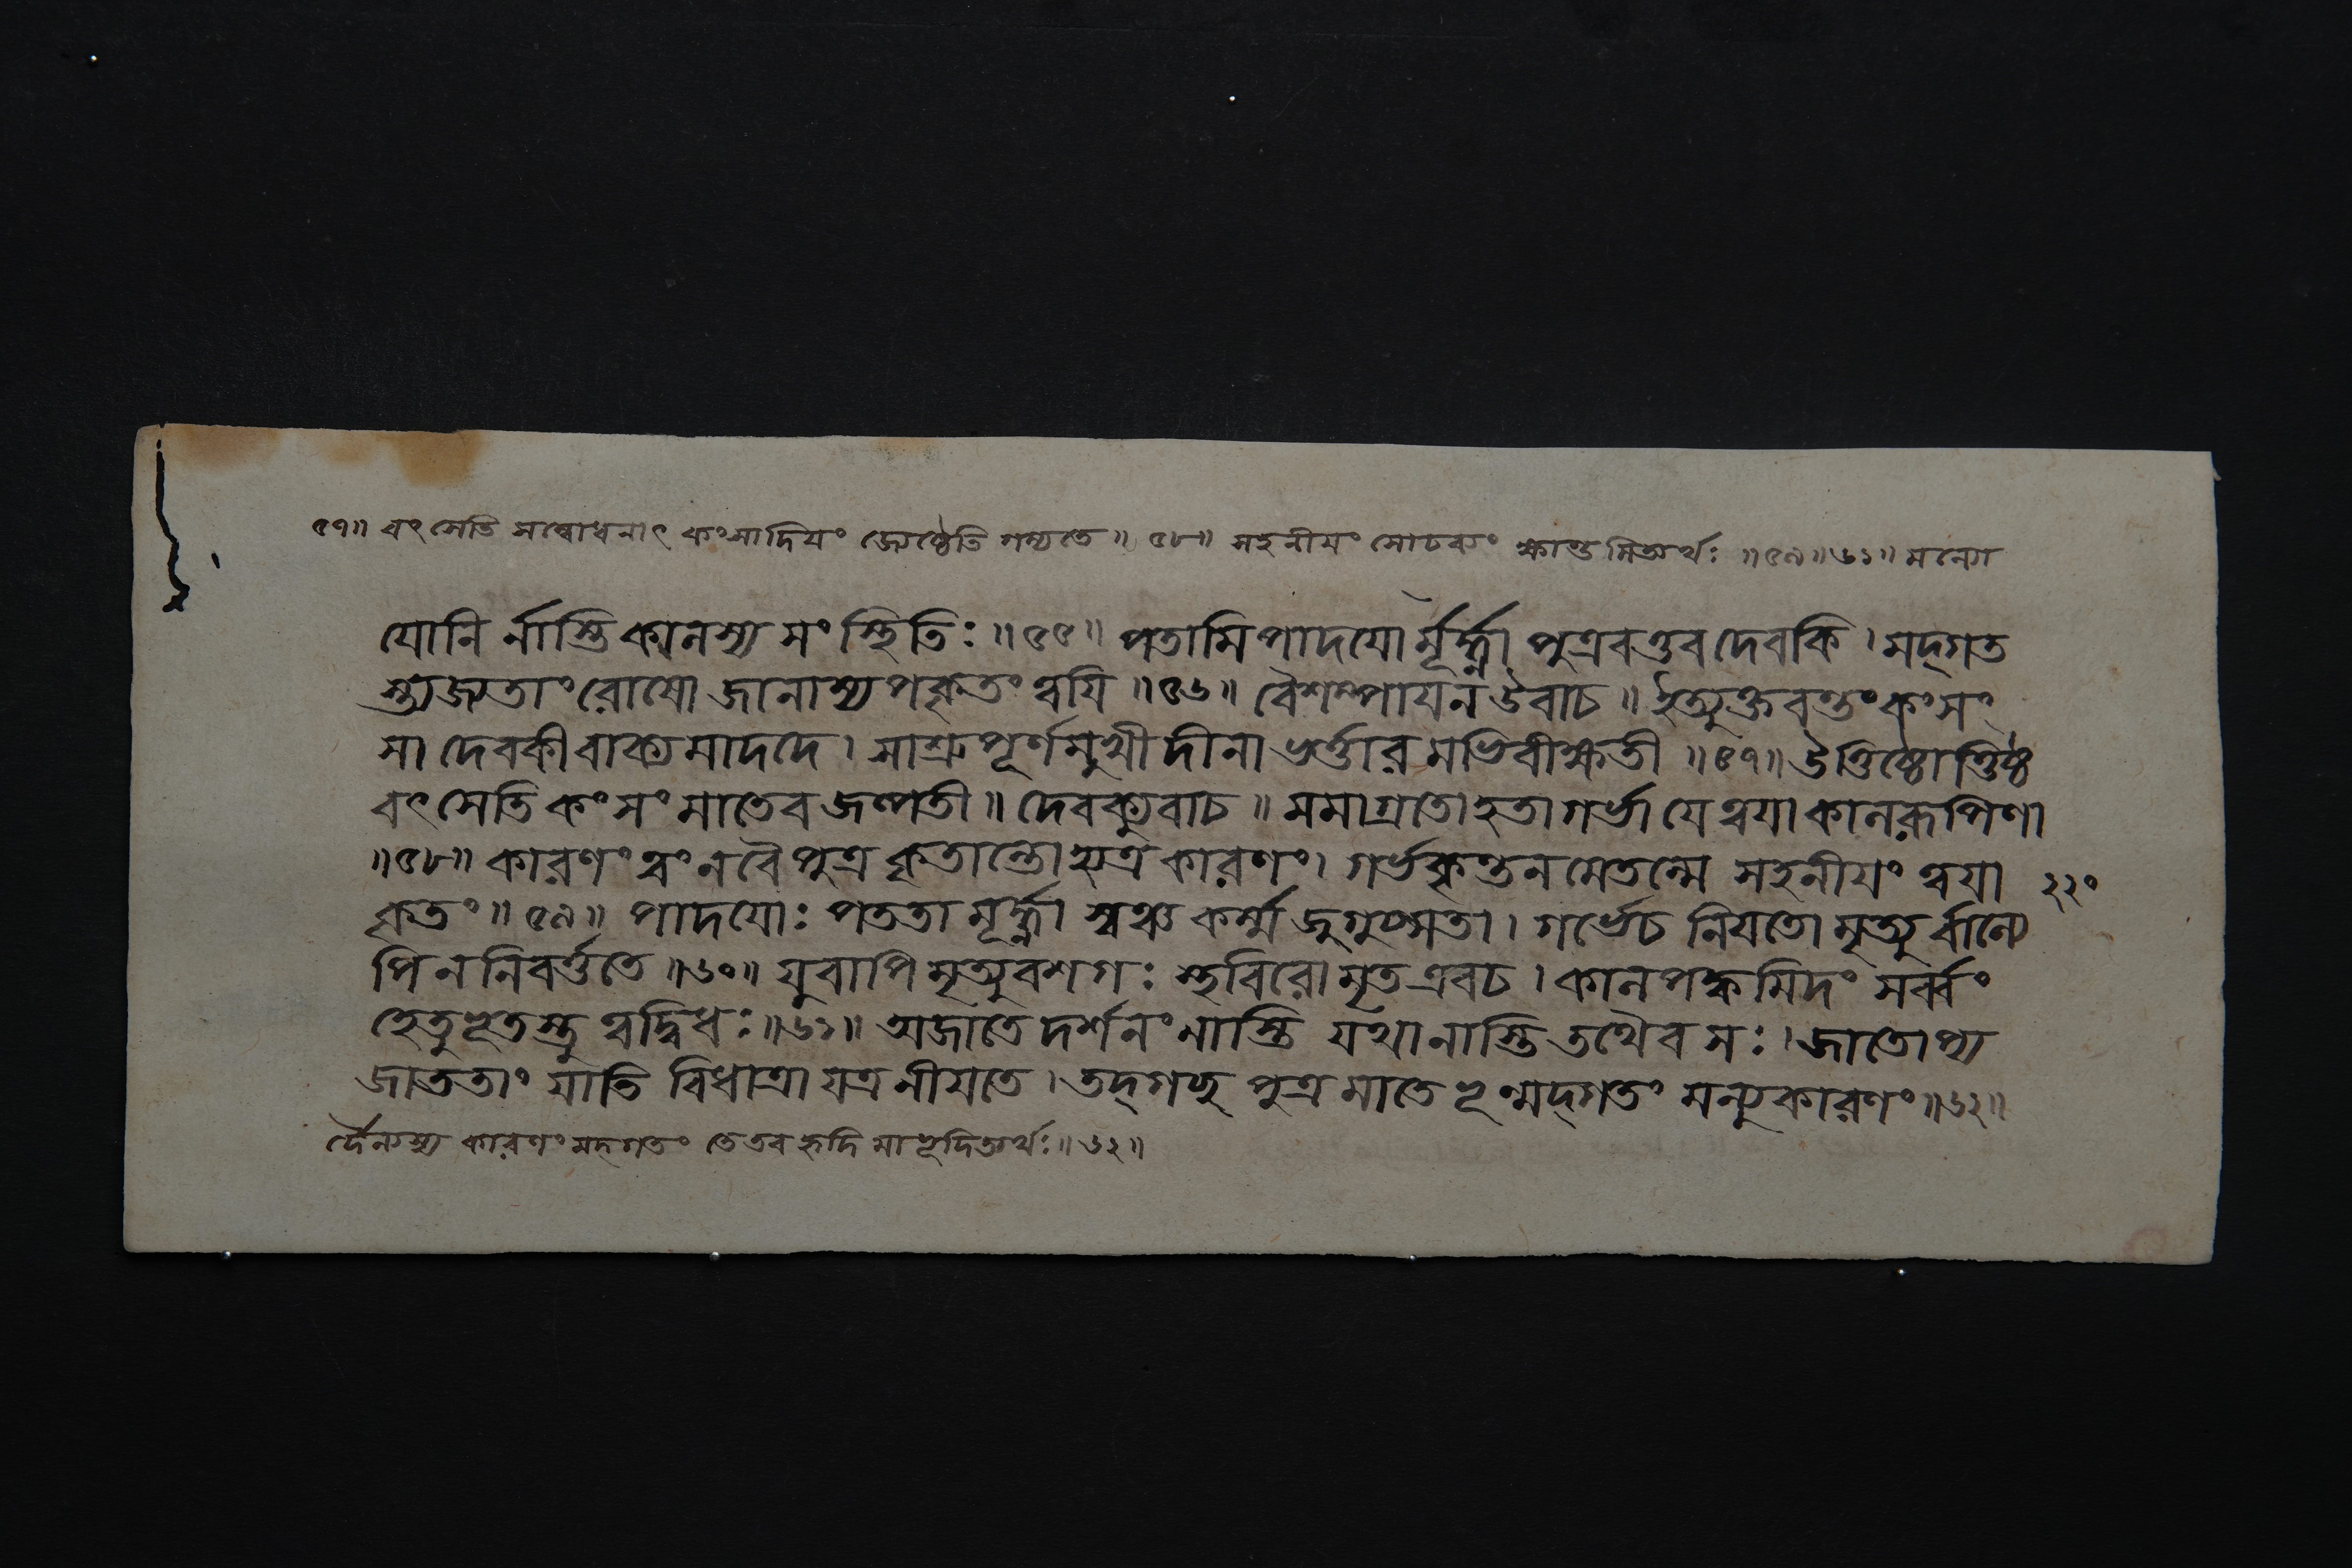 ৫৭॥ বৎসেতি সম্বোধনাৎ কংসাদিয়ং জ্যেষ্ঠেতি গম্যতে॥ ৫৮॥ সহনীয়ং সোঢব্যং ক্ষান্তমিত্যর্থঃ ॥৫৯॥৬১॥ মন্যো
যোনি র্নাস্তি কালস্য সংস্থিতিঃ॥৫৫॥ পতামি পাদযো র্মূর্দ্ধ্না পুত্রবত্তব দেবকি। মদ্গত
স্ত্যজ্যতাং রোষো জানাম্যপকৃতং ত্বযি॥৫৬॥ বৈশম্পাযন উবাচ॥ ইত্যুক্তবন্তং কংসং
সা দেবকী বাক্যমাদদে। সাশ্রুপূর্ণমুখী দীনা ভর্ত্তারমভিবীক্ষতী ॥৫৭॥ উত্তিষ্ঠোত্তিষ্ঠ
বৎসেতি কংসং মাতেব জল্পতী॥ দেবক্যুবাচ॥ মমাগ্রতো হতা গর্ভা যে ত্বযা কালরূপিণা
॥৫৮॥ কারণং ত্বং ন বৈ পুত্র কৃতান্তো হ্যত্র কারণং। গর্ভকৃন্তনমেতন্মে সহনীযং ত্বযা ২২০
কৃতং॥৫৯॥ পাদযোঃ পততা মূর্দ্ধ্না স্বঞ্চ কর্ম্ম জুগুপ্সতা। গর্ভে চ নিযতো মৃত্যু র্বাল্যে
পি ন নিবর্ত্ততে॥৬০॥ যুবাপি মৃত্যুবশগঃ স্থবিরো মৃত এবচ। কালপক্কমিদং সর্ব্বং
হেতুভূতস্তু ত্বদ্বিধঃ॥৬১॥ অজাতে দর্শনং নাস্তি যথা নাস্তি তথৈব সঃ। জাতোপ্য
জাততাং যাতি বিধাত্রা যত্র নীযতে। তদ্গচ্ছ পুত্র মা তে ভূন্মদ্গতং মন্যুকারণং॥৬২॥
র্দৈন্যস্য কারণং মদ্গতং তে তব হৃদি মাভূদিত্যর্থঃ॥৬২॥